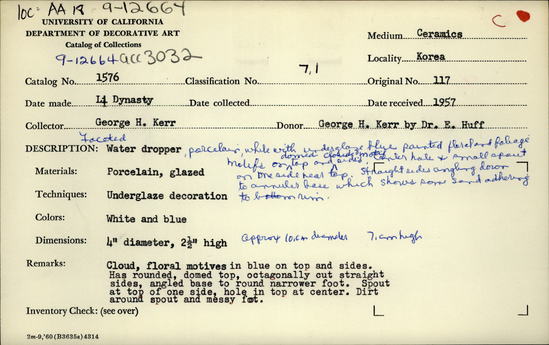 loc: AA 18 9-12664
UNIVERSITY OF CALIFORNIA
DEPARTMENT OF DECORATIVE ART
Catalog of Collections
9-12664 acc 3032
C
Medium Ceramics
Locality Korea
Catalog No. 1576 Classification No. 7,1 Original No. 117
Date made Li Dynasty Date collected Date received 1957
Collector George H. Kerr Donor George H. Kerr by Dr. E. Huff
Faceted
DESCRIPTION: Water dropper, porcelain, white with underglaze blue painted floral and foliage
domed cloud motif
motifs on top and sides. Center hole & small spout
Materials: Porcelain, glazed on one side near top, straight sides angling down
to annular base which shows some sand adhering
Techniques: Underglaze decoration to bottom rim.
Colors: White and blue
Dimensions: 4" diameter, 2½" high approx 10.cm diameter 7.cm high
Remarks: Cloud, floral motives in blue on top and sides.
Has rounded, domed top, octagonally cut straight
sides, angled base to round narrower foot. Spout
at top of one side, hole in top at center. Dirt
around spout and messy foot.
Inventory Check: (see over)
2m-9,'60 (B3635s) 4314